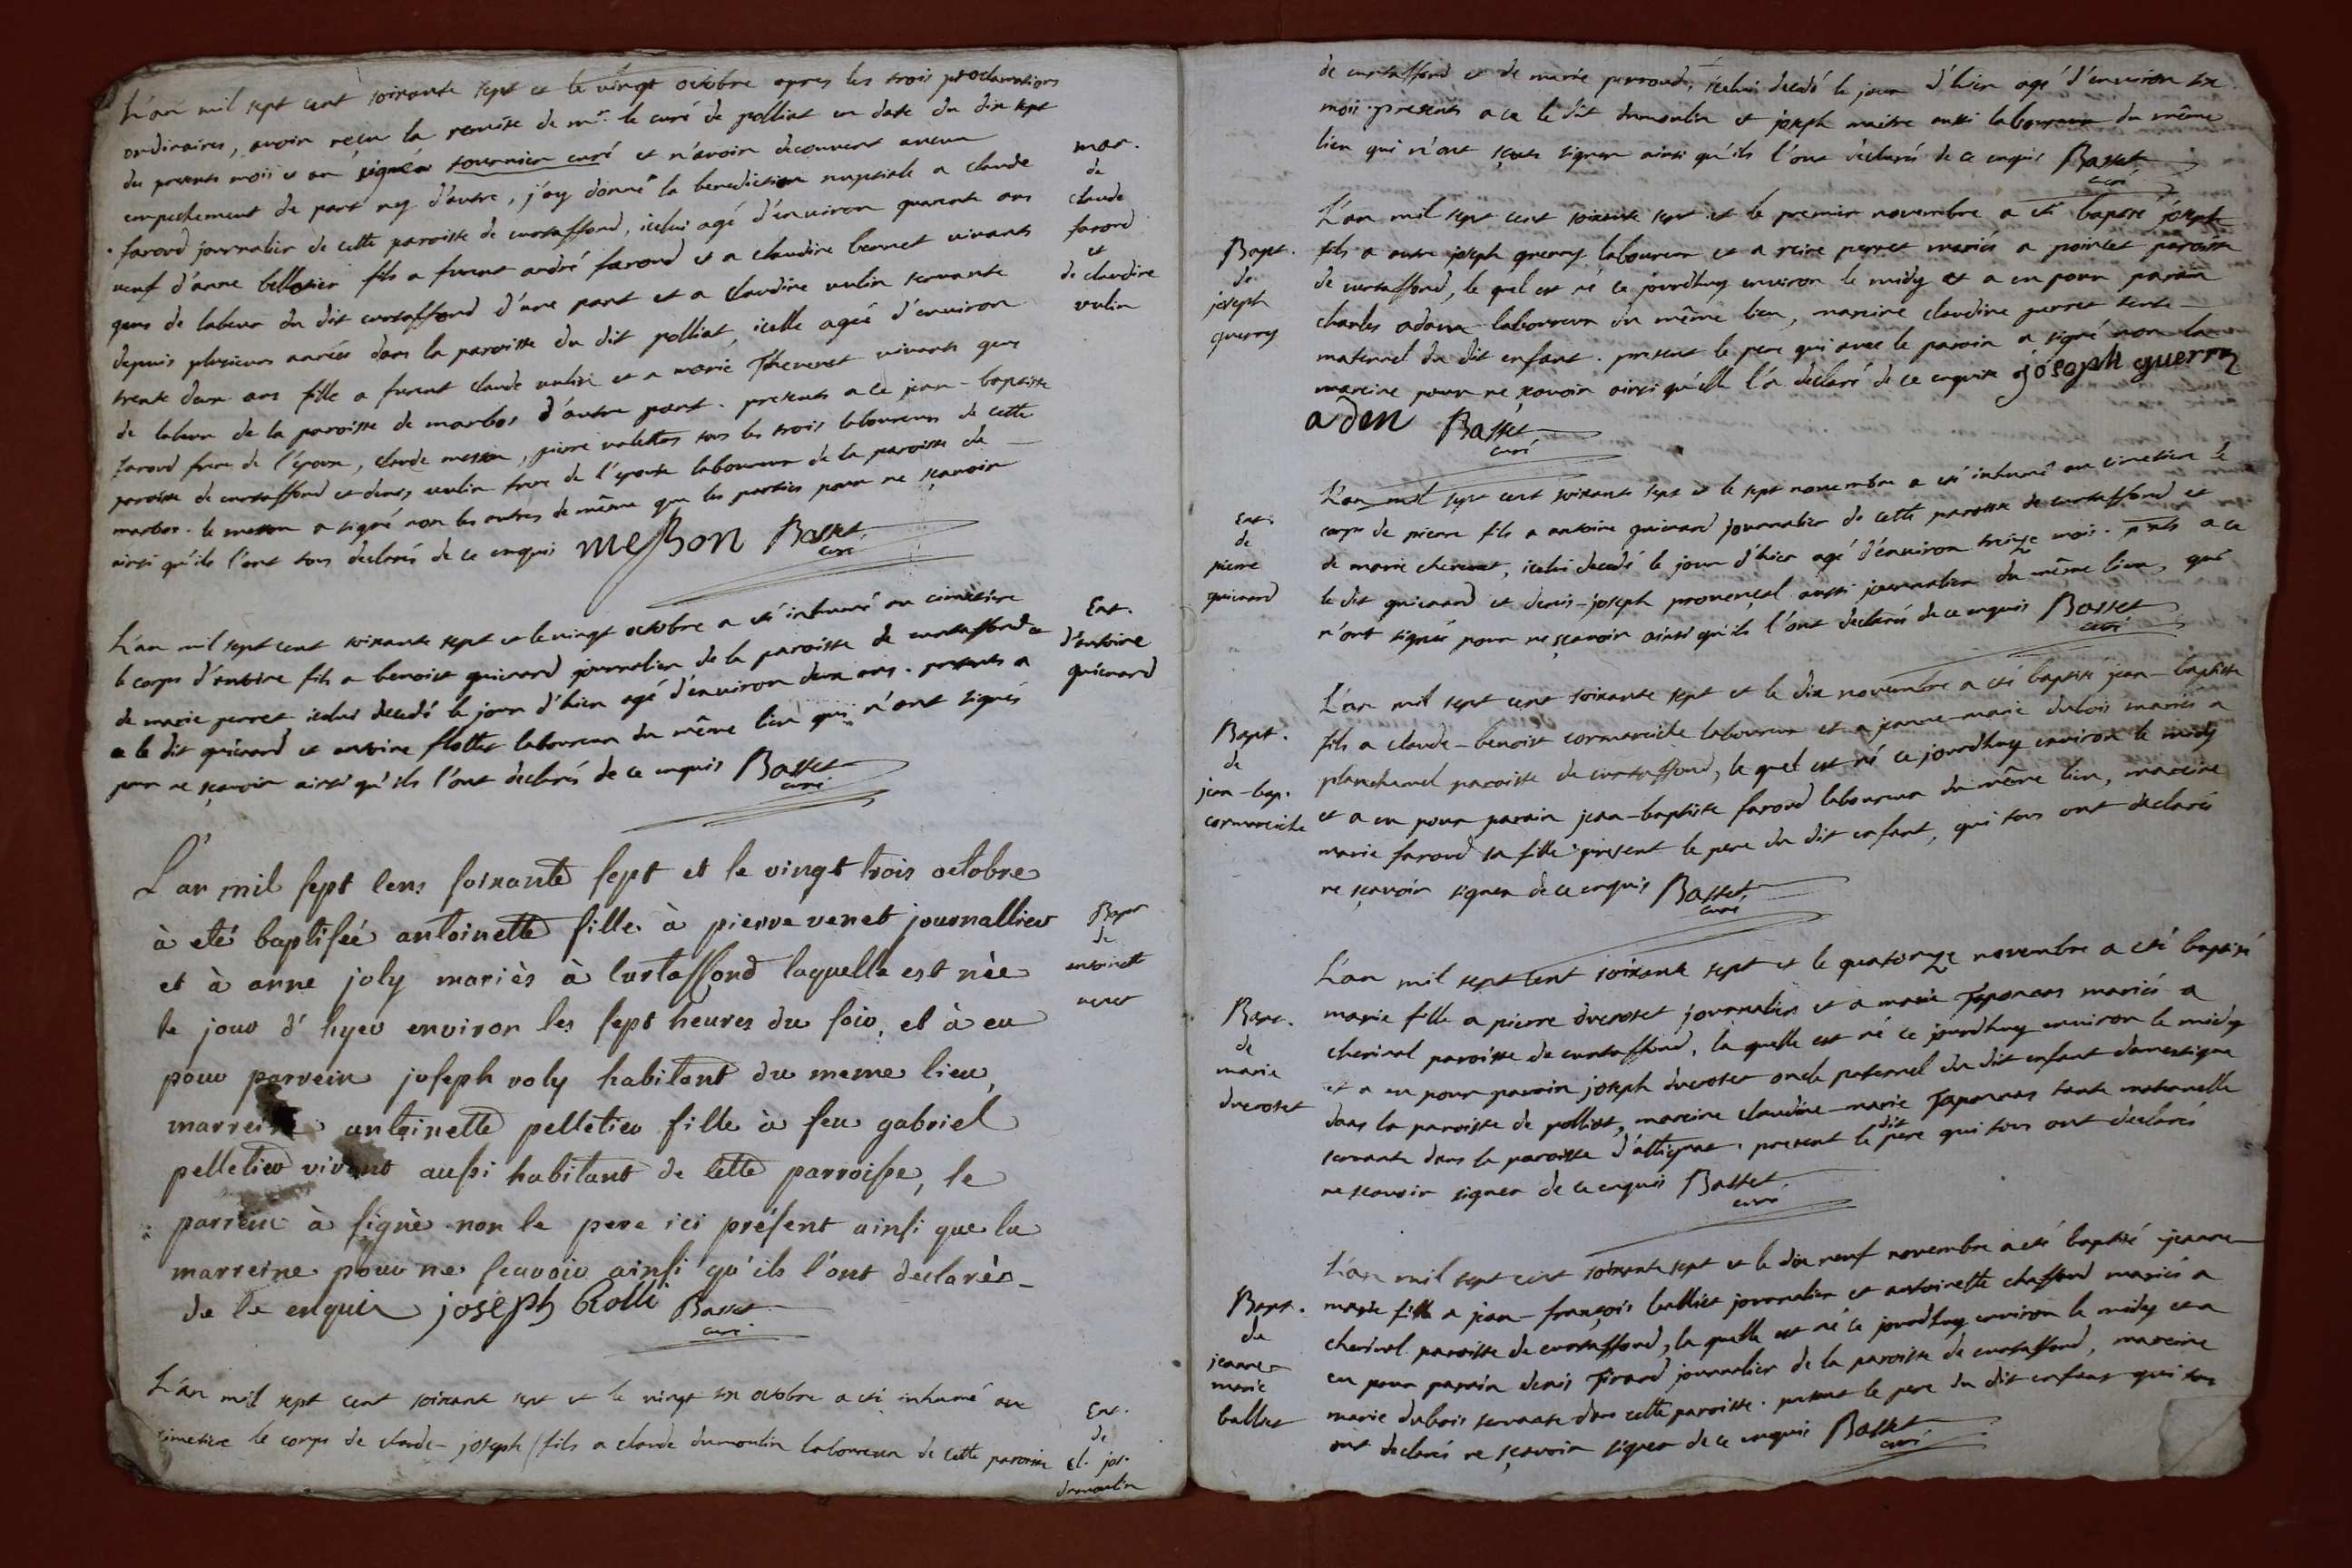 L'an mil sept cent soixante sept et le vingt octobre apres les trois proclamations
ordinaires, avoir reçu la remise de mr. le curé de polliat en date du dix sept
du presents mois et an signée tournier curé et n'avoir decouvert aucun
empechement de part ny d'autre, j'ay donné la benediction nuptiale a claude
farod journalier de cette paroisse de curtaffond, icelui agé d'environ quarante ans
veuf d'anne belletier fils a furent andré farod et a claudine bernet vivants
gens de labeur du dit curtaffond d'une part et a claudine vulin servante
depuis plusieurs années dans la paroisse du dit polliat, icelle agée d'environ
trente deux ans fille a furent claude vulin et a marie Thevenet vivants gens
de labeur de la paroisse de marbos d'autre part. presents a ce jean-baptiste
farod frere de l'époux, claude messon, pierre valettos tous les trois laboureurs de cette
paroisse de curtaffond et denis vulin frere de l'épouse laboureur de la paroisse de
marbos. le messon a signé non les autres de même que les parties pour ne sçavoir
ainsi qu'ils l'ont tous declarés de ce enquis messon Basset
curé
mar.
de
claude
farod
et
de claudine
vulin
L'an mil sept cent soixante sept et le vingt octobre a eté inhumé au cimetière
le corps d'antoine fils a benoist guicnard journalier de la paroisse de curtaffond et
de marie perret icelui decedé le jour d'hier agé d'environ deux ans. presents a
ce le dit guicnard et antoine flottet laboureur du même lieu qui n'ont signés
pour ne sçavoir ainsi qu'ils l'ont declarés de ce enquis Basset
curé
Ent.
d'antoine
guicnard
L'an mil sept cens soixante sept et le vingt trois octobre
à eté baptisée antoinette fille à pierre venet journallier
et à anne joly mariès à Curtaffond laquelle est née
le jour d'hyer environ les sept heures du soir, et à eu
pour parrein joseph roly habitant du meme lieu,
marreine antoinette pelletier fille à feu gabriel
pelletier vivant aussi habitant de cette parroisse, le
parrein à signè non le pere ici présent ainsi que la
marreine pour ne scavoir ainsi qu'ils l'ont declarès
de ce enquis joseph Rolli Basset
curé
Bapt
de
antoinette
venet
L'an mil sept cent soixante sept et le vingt six octobre a eté inhumé au
cimetière le corps de claude-joseph fils a claude dumoulin laboureur de cette paroisse
Ent.
de
cl. jos.
dumoulin
de curtaffond et de marie perroud, icelui decedé le jour d'hier agé d'environ six
mois. presents a ce le dit dumoulin et joseph maitre aussi laboureur du même
lieu qui n'ont sçeus signer ainsi qu'ils l'ont declarés de ce enquis Basset
curé
Bapt.
de
joseph
guerry
L'an mil sept cent soixante sept et le premier novembre a eté baptisé joseph
fils a autre joseph guerry laboureur et a reine perret mariés a pointet paroisse
de curtaffond, le quel est né ce jourdhuy environ le midy et a eu pour parain
charles adam laboureur du même lieu, mareine claudine perret tante
maternel du dit enfant. present le pere qui avec le parain a signé non la
mareine pour ne sçavoir ainsi qu'elle l'a declaré de ce enquise joseph guerry
adm Basset
curé
Ent.
de
pierre
guicnard
L'an mil sept cent soixante sept et le sept novembre a eté inhumé au cimetiere le
corps de pierre fils a antoine guicnard journalier de cette paroisse de curtaffond et
de marie chevenet, icelui decedé le jour d'hier agé d'environ treize mois. pnts a ce
le dit guicnard et denis-joseph provençal aussi journalier du même lieu, qui
n'ont signés pour ne sçavoir ainsi qu'ils l'ont declarés de ce enquis Basset
curé
Bapt.
de
jean-bap.
cormareiche
L'an mil sept cent soixante sept et le dix novembre a eté baptisé jean-baptiste
fils a claude-benoist cormareiche laboureur et a jeanne-marie dubois mariés a
planchamel paroisse de curtaffond, le quel est né ce jourdhuy environ le midy
et a eu pour parain jean-baptiste farod laboureur du même lieu, mareine
marie farod sa fille present le pere du dit enfant, qui tous ont declarés
ne sçavoir signer de ce enquis Basset
curé
Bapt.
de
marie
ducroset
L'an mil sept cent soixante sept et le quatorze novembre a eté baptisé
marie fille a pierre ducroset journalier et a marie Taponas mariés a
cherinal paroisse de curtaffond, la quelle est né ce jourdhuy environ le midy
et a eu pour parain joseph ducroset oncle paternel du dit enfant domestique
dans la paroisse de polliat, mareine claudine-marie Taponas tante maternelle
servante dans la paroisse d'attignat. present le dit pere qui tous ont declarés
ne scavoir signer de ce enquis Basset
curé
Bapt.
de
jeanne-
marie
balliet
L'an mil sept cent soixante sept et le dix neuf novembre a eté baptisé jeanne-
marie fille a jean-françois balliet journalier et antoinette chaffond mariés a
cherinal paroisse de curtaffond, la quelle est né ce jourdhuy environ le midy et a
eu pour parain denis Tirard journalier de la paroisse de curtaffond, mareine
marie dubois servante dans cette paroisse. present le pere du dit enfant qui tous
ont declarés ne sçavoir signer de ce enquis Basset
curé